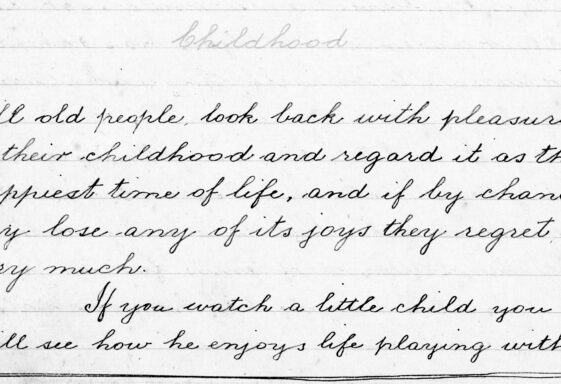 Childhood
ll old people look back with pleasur
their childhood and regard it as th
ppiest time of life, and if by chan
y lose any of its joys they regret
ry much.
If you watch a little child you
ll see how he enjoys life playing with